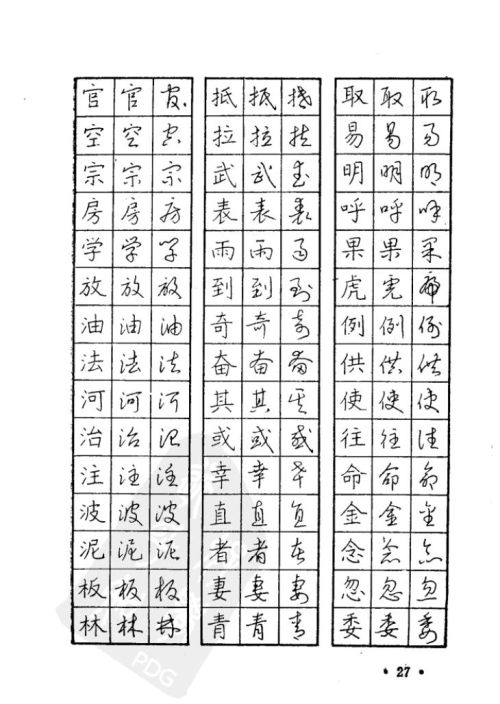 官 官 官 抵 抵 抵 取 取 取
空 空 空 拉 拉 拉 易 易 易
宗 宗 宗 武 武 武 明 明 明
房 房 房 表 表 表 呼 呼 呼
学 学 学 雨 雨 雨 果 果 果
放 放 放 到 到 到 虎 虎 虎
油 油 油 奇 奇 奇 例 例 例
法 法 法 奋 奋 奋 供 供 供
河 河 河 其 其 其 使 使 使
治 治 治 或 或 或 往 往 往
注 注 注 幸 幸 幸 命 命 命
波 波 波 直 直 直 金 金 金
泥 泥 泥 者 者 者 念 念 念
板 板 板 妻 妻 妻 忽 忽 忽
林 林 林 青 青 青 委 委 委
PDG
· 27 ·